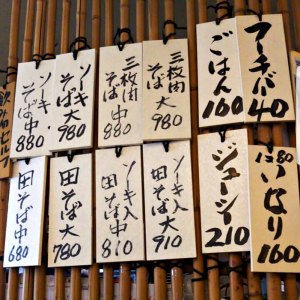 フーチバ 40
ごはん 160
三枚肉
そば大
980
三枚肉
そば中
880
ソーキ
そば大
980
ソーキ
そば中
880
いなり 160
ジューシィ 210
ソーキ入
田そば大
910
ソーキ入
田そば中
810
田そば大
780
田そば中
680